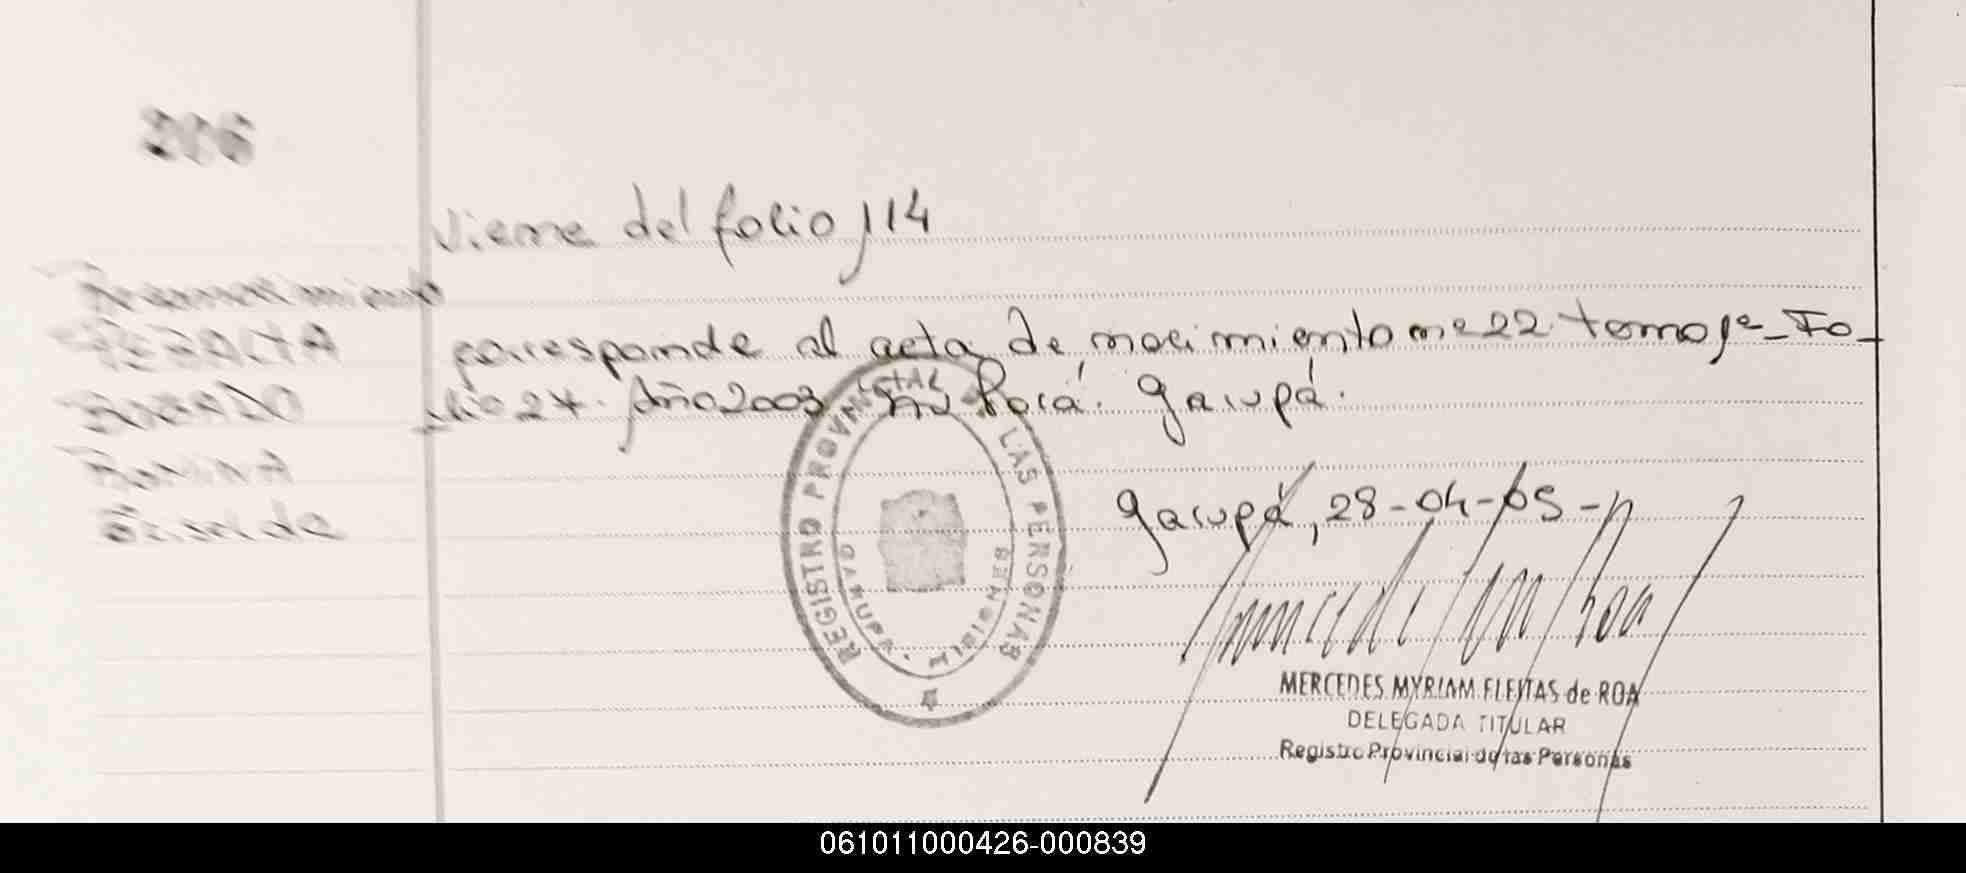 206
Viene del folio 114
Reconocimiento
PERALTA
BOGADO
ROMINA
Griselda
corresponde al acta de nacimiento nº 22. tomo 1º - Fo-
lio 24. Año 2003. Itá Porá. Garupá.
REGISTRO PROVINCIAL DE LAS PERSONAS
GARUPA · MISIONES
Garupá, 28-04-05-
MERCEDES MYRIAM FLEITAS de ROA
DELEGADA TITULAR
Registro Provincial de las Personas
061011000426-000839